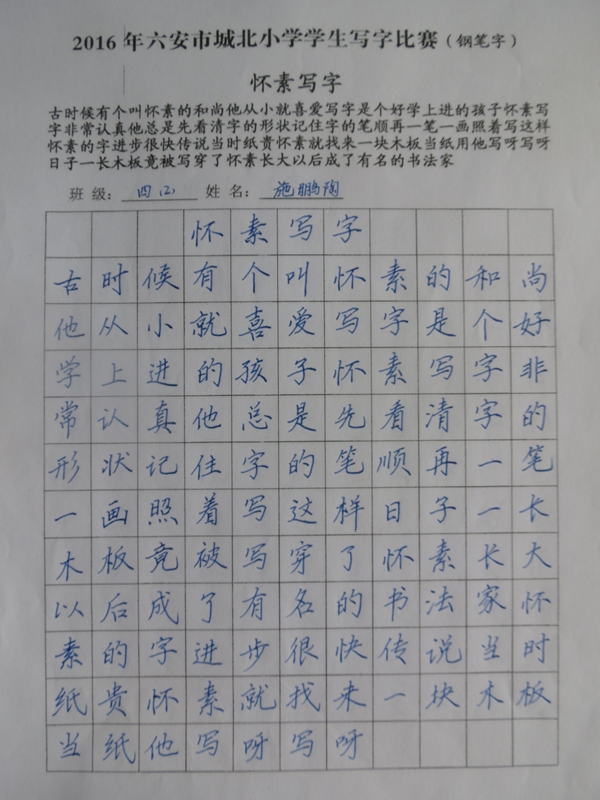 2016年六安市城北小学学生写字比赛（钢笔字）
怀素写字
古时候有个叫怀素的和尚他从小就喜爱写字是个好学上进的孩子怀素写
字非常认真他总是先看清字的形状记住字的笔顺再一笔一画照着写这样
怀素的字进步很快传说当时纸贵怀素就找来一块木板当纸用他写呀写呀
日子一长木板竟被写穿了怀素长大以后成了有名的书法家
班级：四(2) 姓名：施鹏陶
怀素写字
古时候有个叫怀素的和尚
他从小就喜爱写字是个好
学上进的孩子怀素写字非
常认真他总是先看清字的
形状记住字的笔顺再一笔
一画照着写这样日子一长
木板竟被写穿了怀素长大
以后成了有名的书法家怀
素的字进步很快传说当时
纸贵怀素就找来一块木板
当纸他写呀写呀